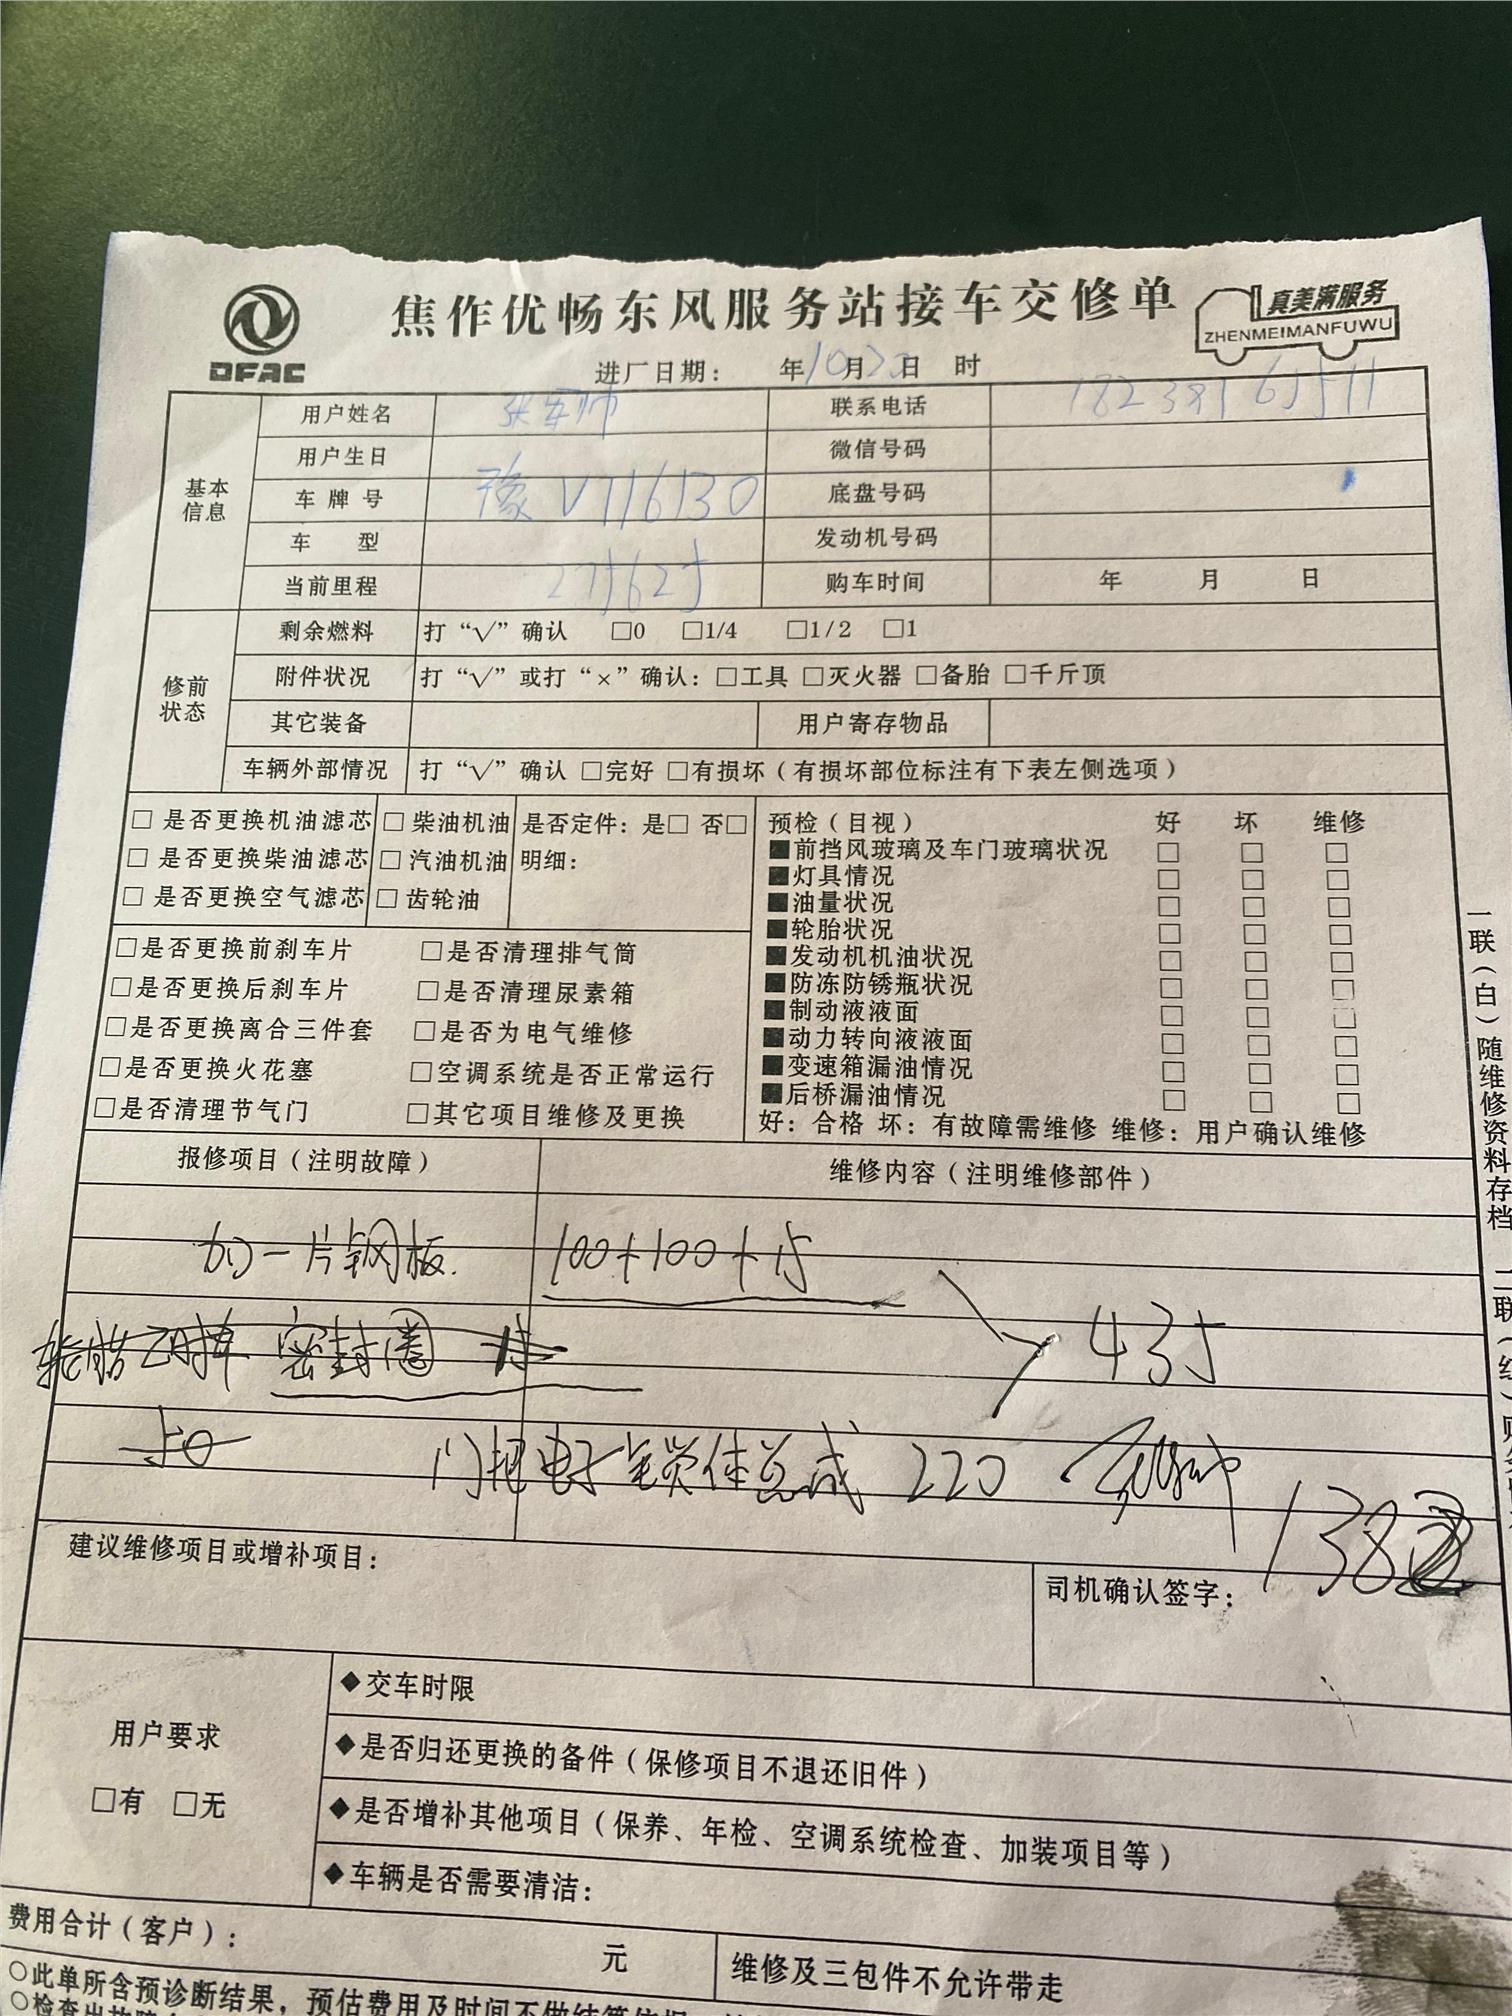 焦作优畅东风服务站接车交修单
DFAC
真美满服务
ZHENMEIMANFUWU
进厂日期： 年10月20日 时
基本信息
用户姓名 张军帅 联系电话
用户生日 微信号码
车牌号 豫V116130 底盘号码
车型 发动机号码
当前里程 275625 购车时间 年 月 日
修前状态
剩余燃料 打“√”确认 □0 □1/4 □1/2 □1
附件状况 打“√”或打“×”确认：□工具 □灭火器 □备胎 □千斤顶
其它装备 用户寄存物品
车辆外部情况 打“√”确认 □完好 □有损坏（有损坏部位标注有下表左侧选项）
□ 是否更换机油滤芯 □ 柴油机油 是否定件：是□ 否□
□ 是否更换柴油滤芯 □ 汽油机油 明细：
□ 是否更换空气滤芯 □ 齿轮油
□是否更换前刹车片 □是否清理排气筒
□是否更换后刹车片 □是否清理尿素箱
□是否更换离合三件套 □是否为电气维修
□是否更换火花塞 □空调系统是否正常运行
□是否清理节气门 □其它项目维修及更换
预检（目视） 好 坏 维修
■前挡风玻璃及车门玻璃状况 □ □ □
■灯具情况 □ □ □
■油量状况 □ □ □
■轮胎状况 □ □ □
■发动机机油状况 □ □ □
■防冻防锈瓶状况 □ □ □
■制动液液面 □ □ □
■动力转向液液面 □ □ □
■变速箱漏油情况 □ □ □
■后桥漏油情况 □ □ □
好：合格 坏：有故障需维修 维修：用户确认维修
一联（白）随维修资料存档
报修项目（注明故障） 维修内容（注明维修部件）
加一片钢板 100+100+15
密封圈 15
435
50
门把电子锁体总成 220
138
建议维修项目或增补项目：
司机确认签字：
用户要求
□有 □无
◆交车时限
◆是否归还更换的备件（保修项目不退还旧件）
◆是否增补其他项目（保养、年检、空调系统检查、加装项目等）
◆车辆是否需要清洁：
费用合计（客户）： 元 维修及三包件不允许带走
○此单所含预诊断结果，预估费用及时间不做结算依据